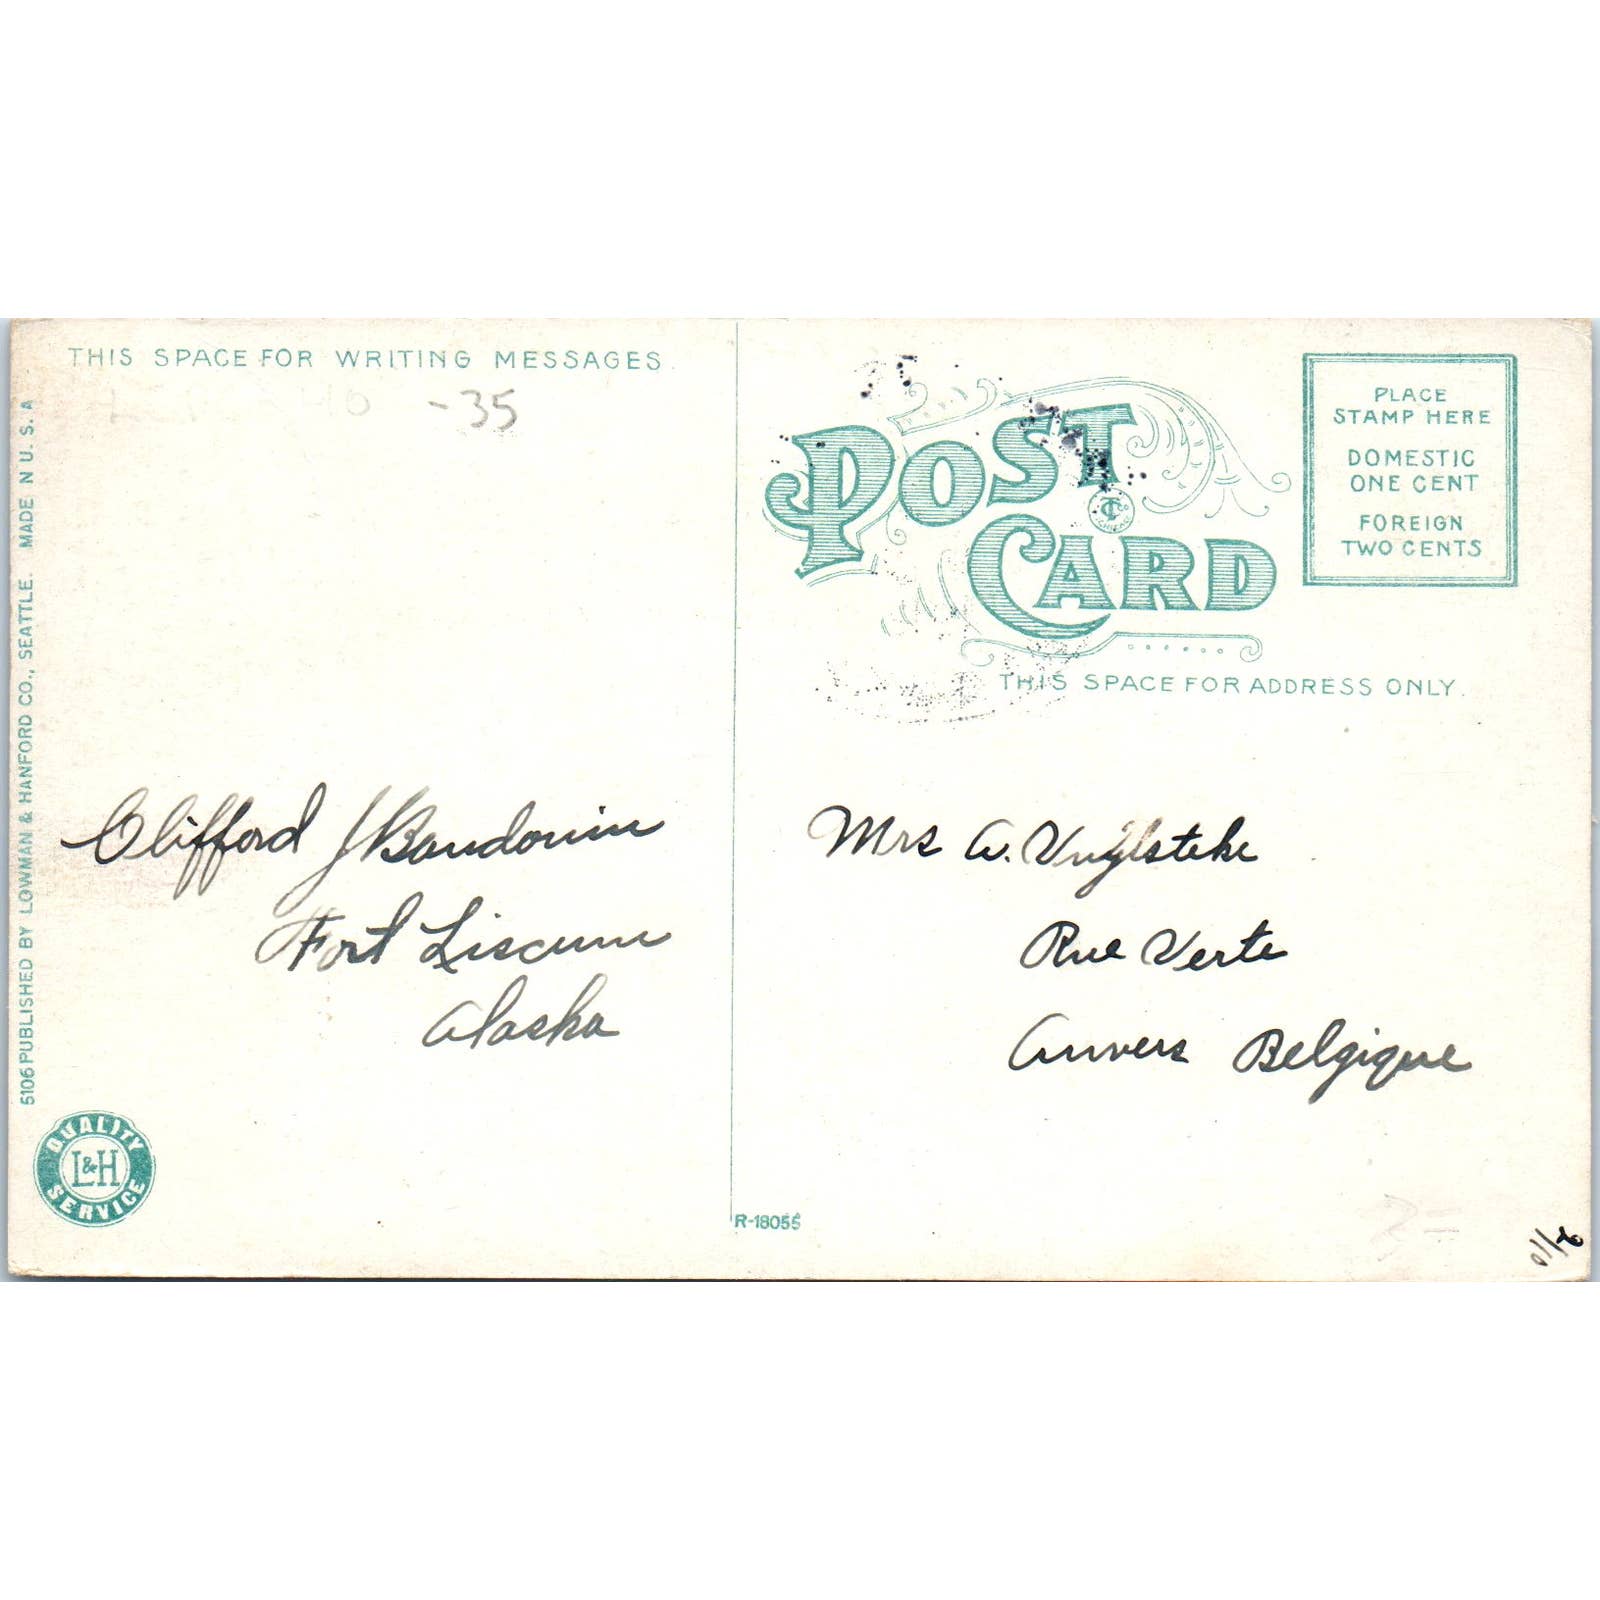 THIS SPACE FOR WRITING MESSAGES
-35
Clifford J Baudouin
Fort Liscum
Alaska
5106 PUBLISHED BY LOWMAN & HANFORD CO., SEATTLE. MADE N U. S. A
QUALITY
L&H
SERVICE
R-18055
POST
CARD
CHICAGO
PLACE
STAMP HERE
DOMESTIC
ONE CENT
FOREIGN
TWO CENTS
THIS SPACE FOR ADDRESS ONLY.
Mrs A. Vuylsteke
Rue Verte
Anvers Belgique